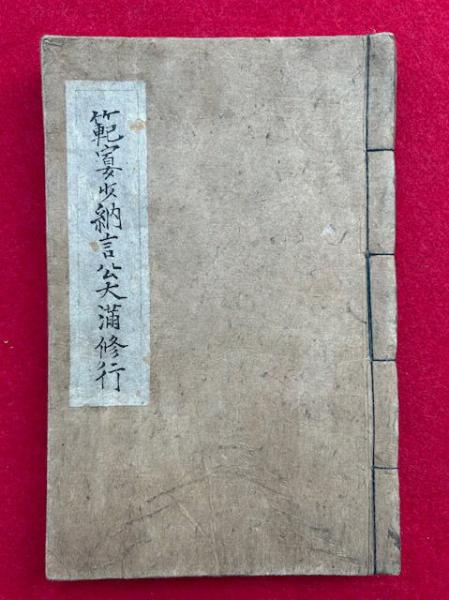 範宴少納言公大満修行